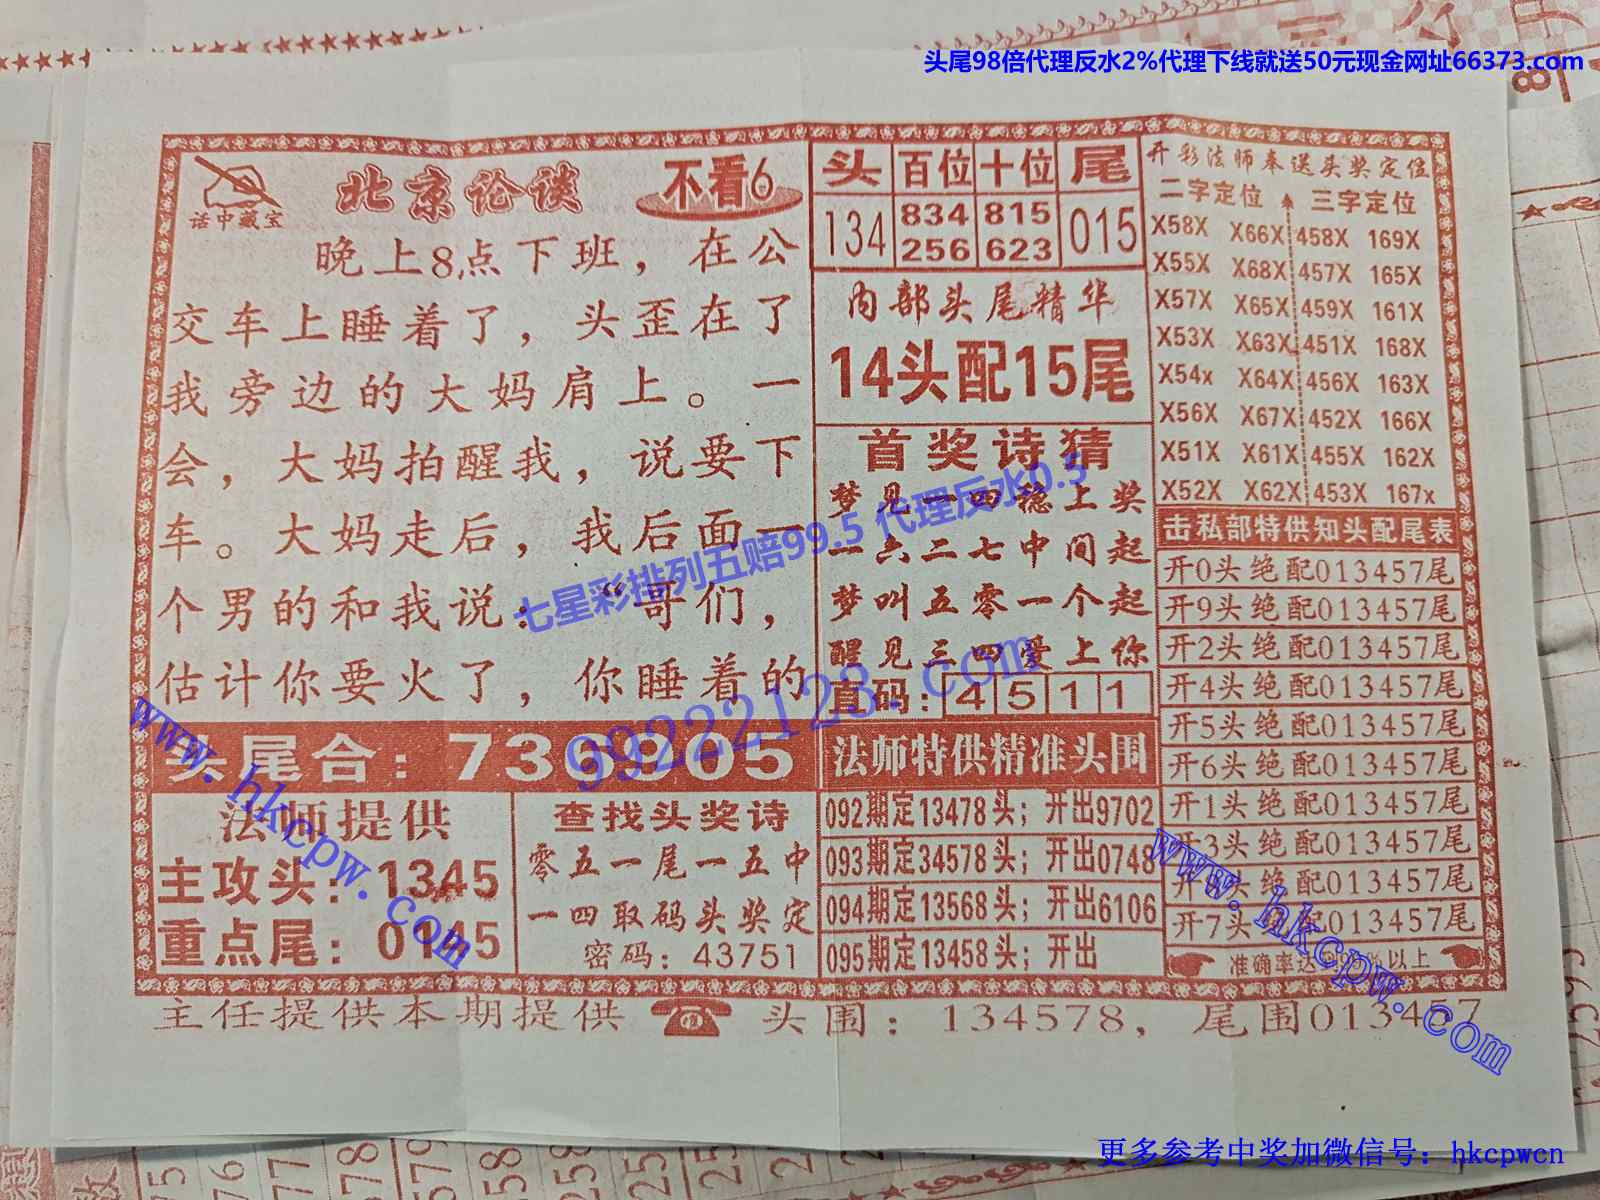 头尾98倍代理反水2%代理下线就送50元现金网址66373.com
话中藏宝
北京论谈
不看6
晚上8点下班，在公
交车上睡着了，头歪在了
我旁边的大妈肩上。一
会，大妈拍醒我，说要下
车。大妈走后，我后面一
个男的和我说：“哥们，
估计你要火了，你睡着的
头尾合：736905
法师提供
主攻头：1345
重点尾：0145
查找头奖诗
零五一尾一五中
一四取码头奖定
密码：43751
头 百位 十位 尾
134 834 815 015
256 623
内部头尾精华
14头配15尾
首奖诗猜
梦见一四稳上奖
一六二七中间起
梦叫五零一个起
醒见三四爱上你
直码：4 5 1 1
法师特供精准头围
092期定13478头；开出9702
093期定34578头；开出0748
094期定13568头；开出6106
095期定13458头；开出
开彩法师奉送头奖定位
二字定位 三字定位
X58X X66X 458X 169X
X55X X68X 457X 165X
X57X X65X 459X 161X
X53X X63X 451X 168X
X54x X64X 456X 163X
X56X X67X 452X 166X
X51X X61X 455X 162X
X52X X62X 453X 167x
击私部特供知头配尾表
开0头绝配013457尾
开9头绝配013457尾
开2头绝配013457尾
开4头绝配013457尾
开5头绝配013457尾
开6头绝配013457尾
开1头绝配013457尾
开3头绝配013457尾
开8头绝配013457尾
开7头绝配013457尾
准确率达 %以上
主任提供本期提供 头围：134578，尾围013457
七星彩排列五赔99.5 代理反水0.5
99222123.com
www.hkcpw.com
www.hkcpw.com
更多参考中奖加微信号：hkcpwcn